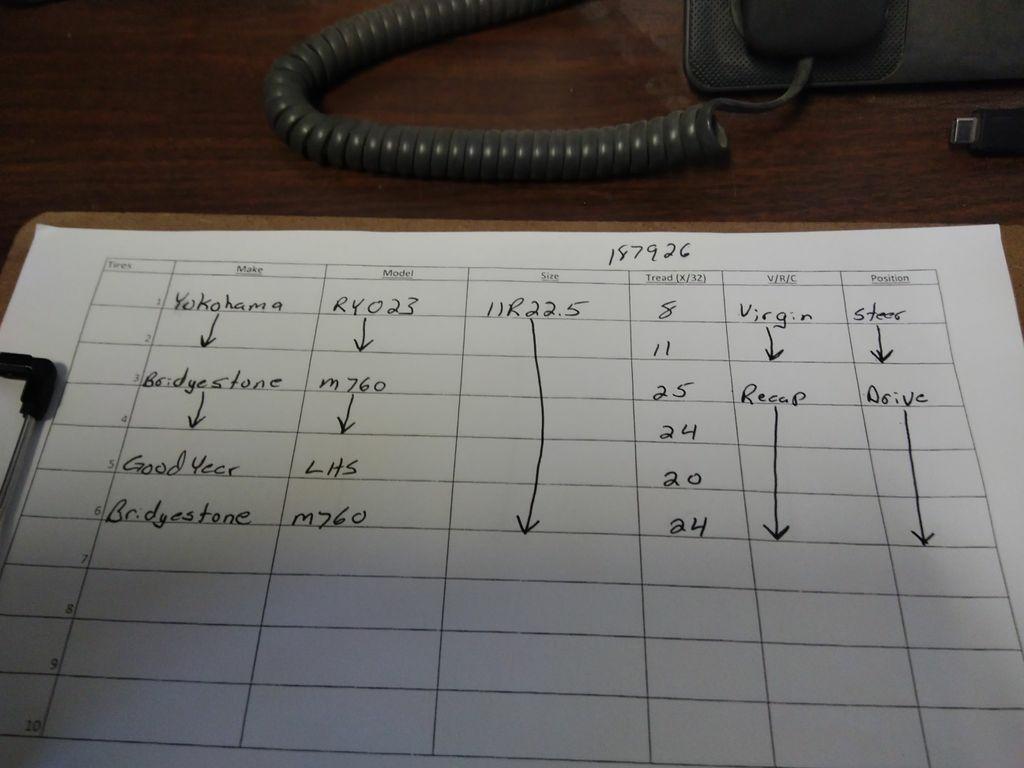 187926
Tires Make Model Size Tread (X/32) V/R/C Position
1 Yokohama RY023 11R22.5 8 Virgin Steer
2 11
3 Bridgestone M760 25 Recap Drive
4 24
5 Goodyear LHS 20
6 Bridgestone M760 24
7
8
9
10